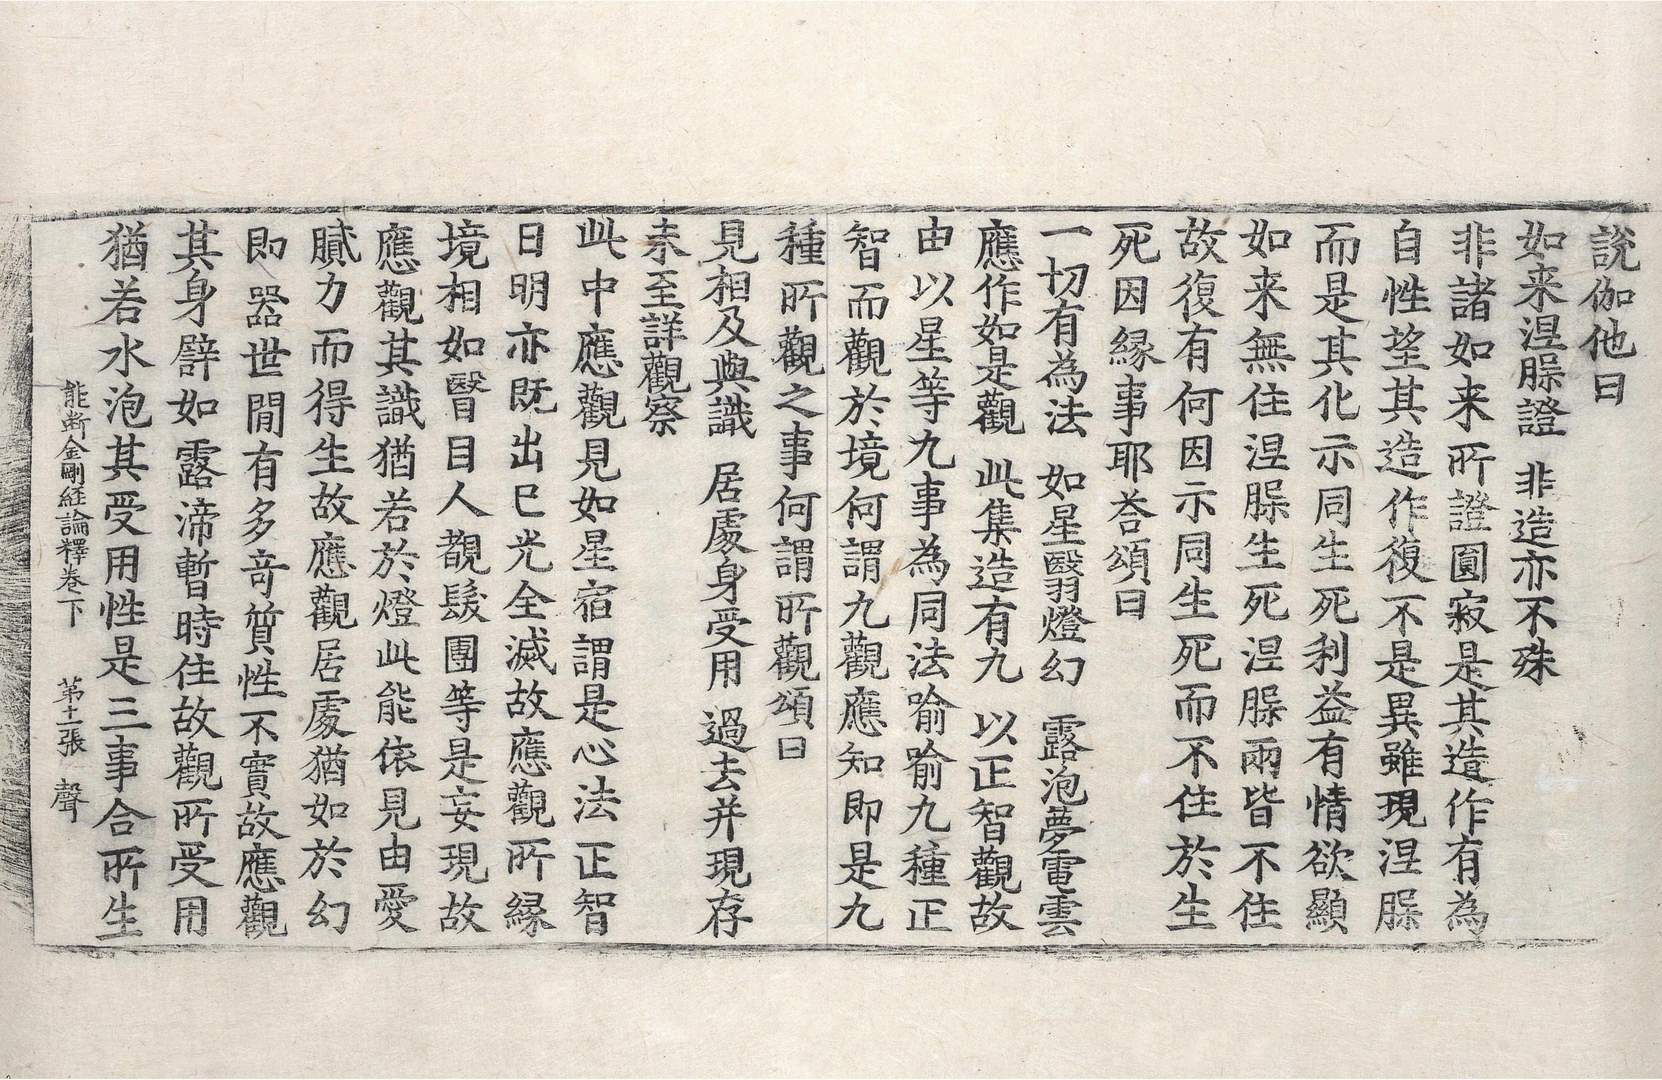 說伽他曰
如来涅槃證　非造亦不殊
非諸如来所證圓寂是其造作有為
自性望其造作復不是異雖現涅槃
而是其化示同生死利益有情欲顯
如来無住涅槃生死涅槃兩皆不住
故復有何因示同生死而不住於生
死因縁事耶荅頌曰
一切有為法　如星翳燈幻　露泡夢電雲
應作如是觀　此集造有九　以正智觀故
由以星等九事為同法喻喻九種正
智而觀於境何謂九觀應知即是九
種所觀之事何謂所觀頌曰
見相及與識　居處身受用　過去并現存
未至詳觀察
此中應觀見如星宿謂是心法正智
日明亦既出巳光全滅故應觀所縁
境相如翳目人覩髮團等是妄現故
應觀其識猶若於燈此能依見由愛
膩力而得生故應觀居處猶如於幻
即器世間有多竒質性不實故應觀
其身譬如露渧暫時住故觀所受用
猶若水泡其受用性是三事合所生
能斷金剛経論釋卷下　第十一張　聲